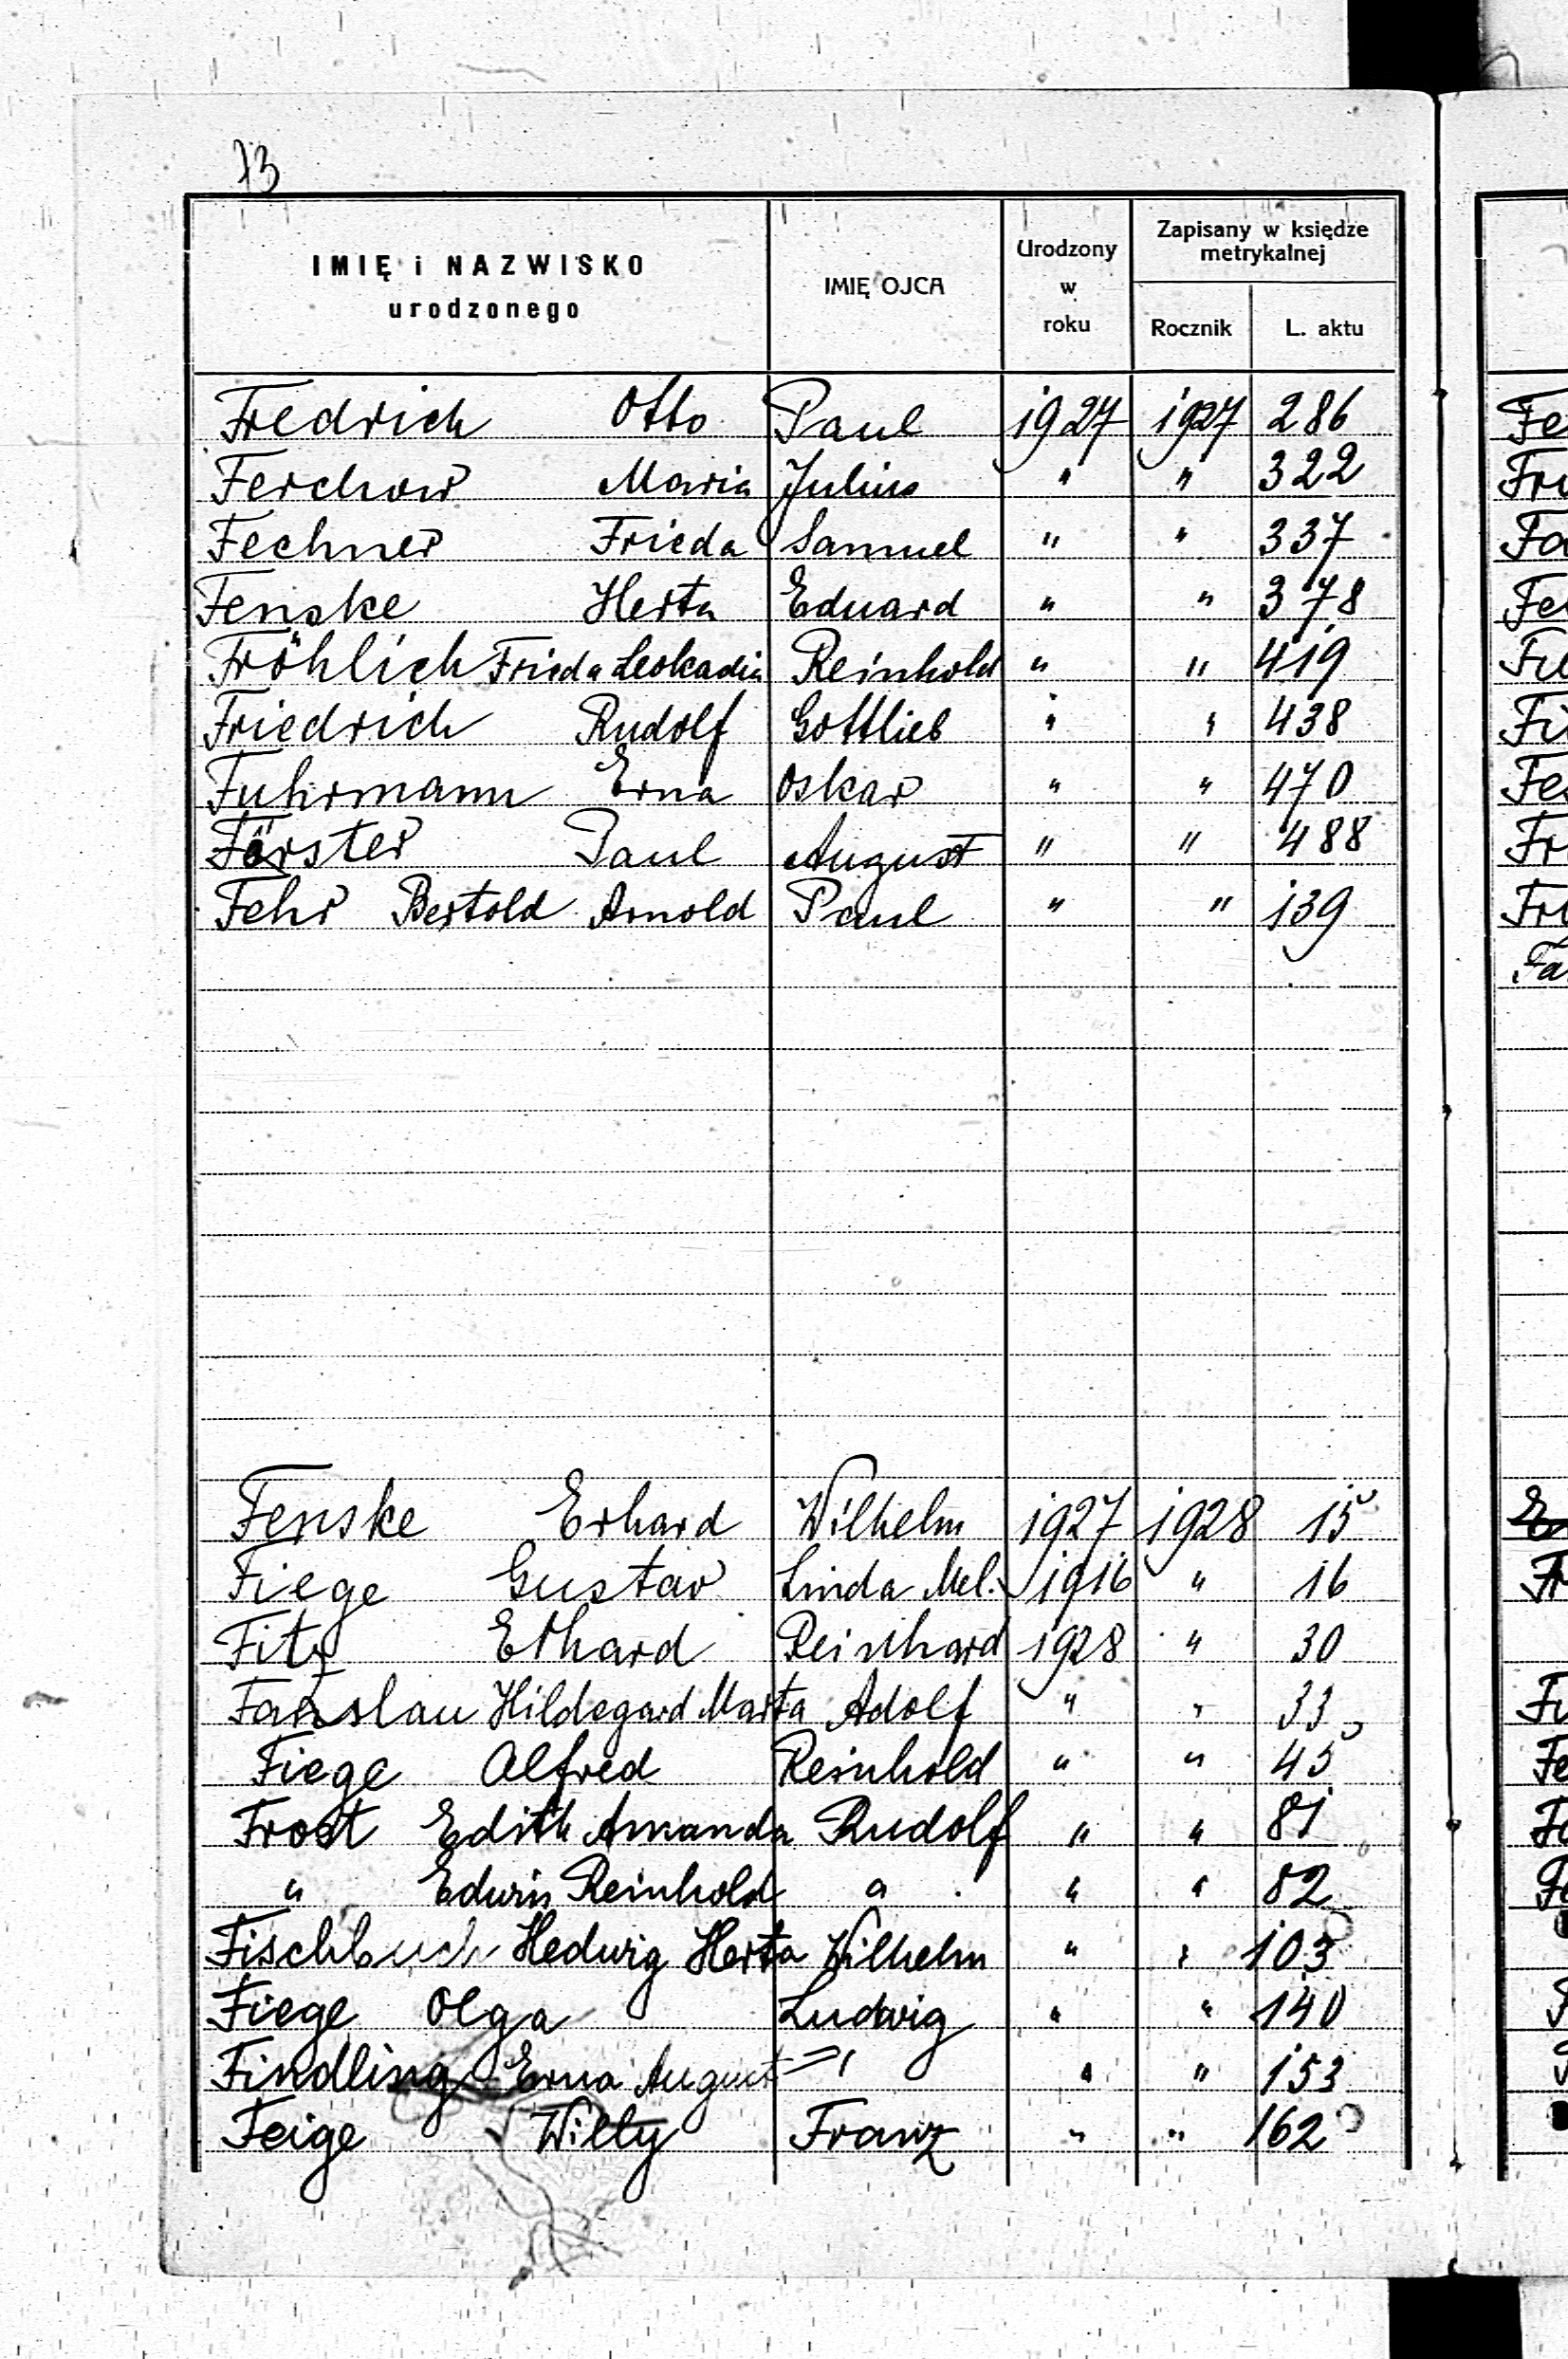 73
IMIĘ i NAZWISKO urodzonego IMIĘ OJCA Urodzony w roku Zapisany w księdze metrykalnej Rocznik L. aktu
Fredrich Otto Paul 1927 1927 286
Ferchow Maria Julius " " 322
Fechner Frieda Samuel " " 337
Fenske Herta Eduard " " 378
Fröhlich Frieda Leokadia Reinhold " " 419
Friedrich Rudolf Gottlieb " " 438
Fuhrmann Erna Oskar " " 470
Förster Paul August " " 488
Fehr Bertold Arnold Paul " " 139
Fenske Erhard Wilhelm 1927 1928 15
Fiege Gustav Linda Mel. 1916 " 16
Fitz Erhard Reinhard 1928 " 30
Fanslau Hildegard Marta Adolf " " 33
Fiege Alfred Reinhold " " 45
Frost Edith Amanda Rudolf " " 81
" Edwin Reinhold " " " 82
Fischbuch Hedwig Herta Wilhelm " " 103
Fiege Olga Ludwig " " 140
Findling Erna August " " 153
Feige Willy Franz " " 162